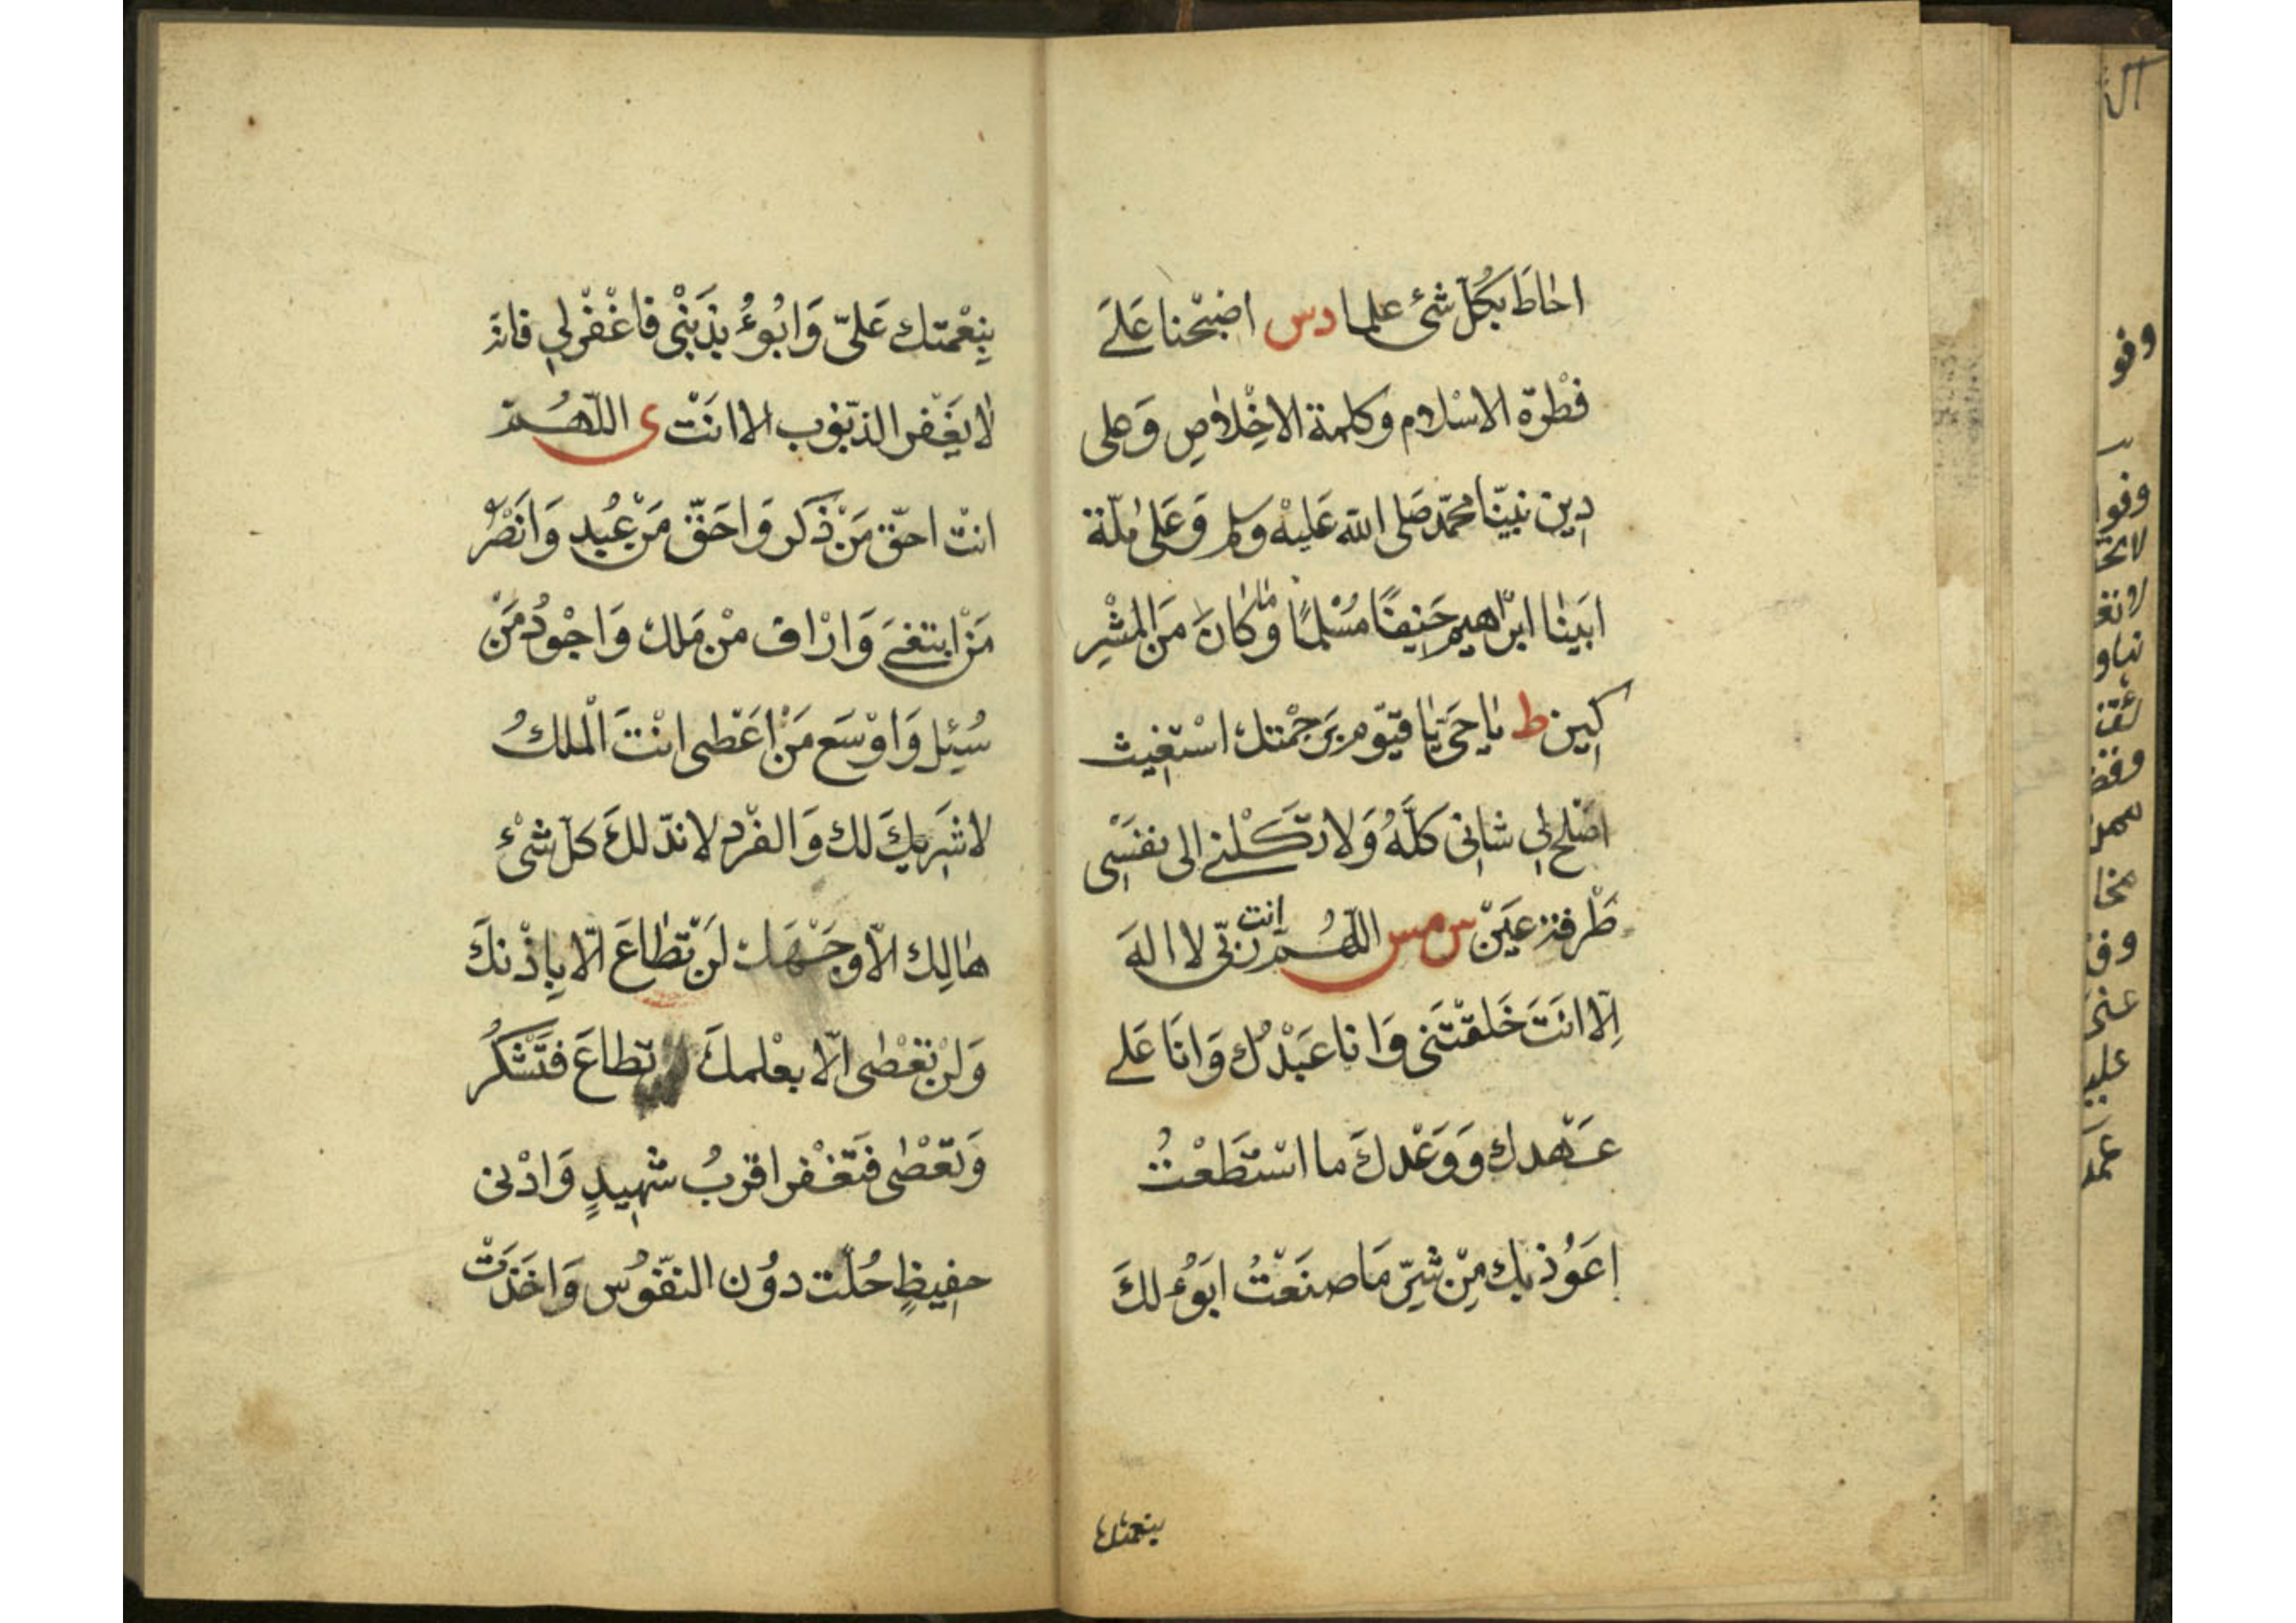 احاط بكلّ شئ علما دس اصبحنا على
فطرة الاسلام وكلمة الاخلاص وعلى
دين نبيّنا محمّد صلى الله عليه وسلم وعلى ملّة
ابينا ابراهيم حنيفًا مسلمًا وما كان من المشر
كين ط ياحى ياقيّوم برحمتك استغيث
اصلح لى شانى كلّهُ ولا تكلنى الى نفسى
طرفة عين س مس اللّهُمّ انت ربّى لا اله
الّا انت خلقتنى وانا عبدُك وانا على
عهدك ووعدك ما استطعتُ
اعوُذ بك من شرّ ما صنعتُ ابوُء لك
بنعمتك
بنعمتك علىّ وابوُءُ بذنبى فاغفر لى فانه
لا يغفر الذّنوب الا انت ى اللّهُمّ
انت احقّ من ذكر واحقّ من عُبد وانصرُ
من ابتغى واراف من ملك واجودُ من
سُئِل واوسع من اعطى انت الملكُ
لا شريك لك والفرد لا ندّ لك كلّ شئ
هالك الّا وجهك لن تطاع الّا باذنك
ولن تعصى الّا بعلمك تطاع فتشكرُ
وتعصى فتغفر اقربُ شهيدٍ وادنى
حفيظٍ حُلْت دوُن النفوُس واخذت